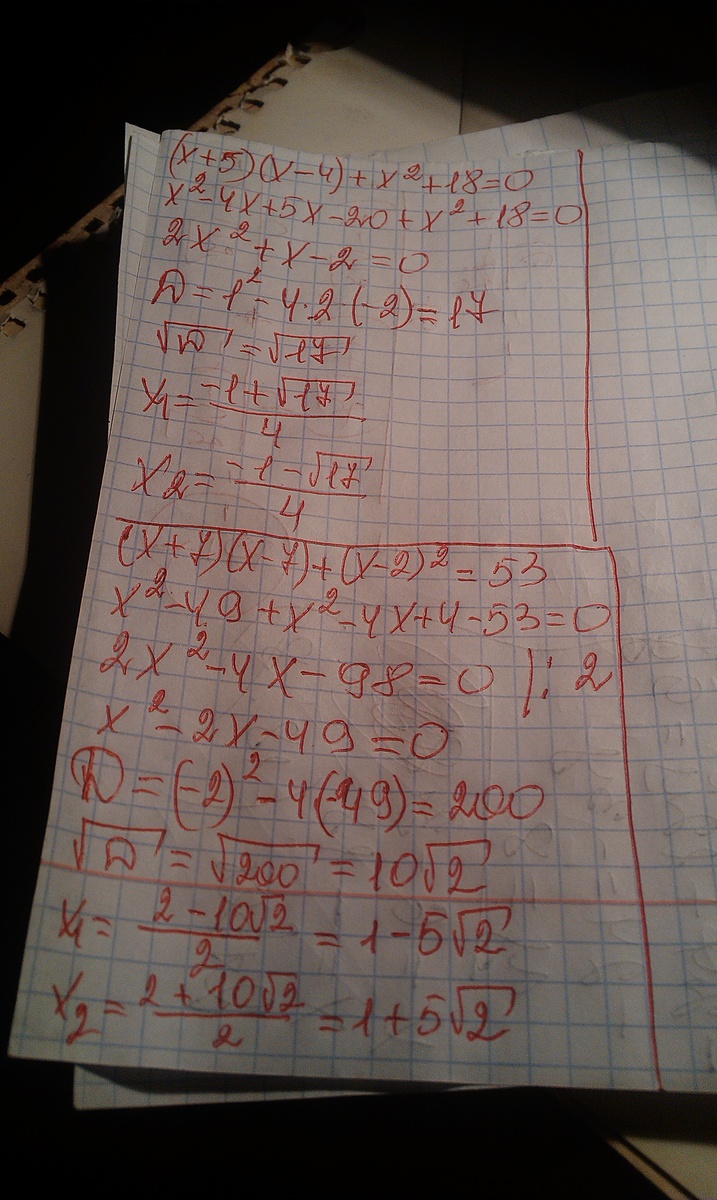 (x+5)(x-4)+x²+18=0
x²-4x+5x-20+x²+18=0
2x²+x-2=0
D=1²-4·2(-2)=17
√D=√17
x₁=(-1+√17)/4
x₂=(-1-√17)/4
(x+7)(x-7)+(x-2)²=53
x²-49+x²-4x+4-53=0
2x²-4x-98=0 |:2
x²-2x-49=0
D=(-2)²-4(-49)=200
√D=√200=10√2
x₁=(2-10√2)/2=1-5√2
x₂=(2+10√2)/2=1+5√2